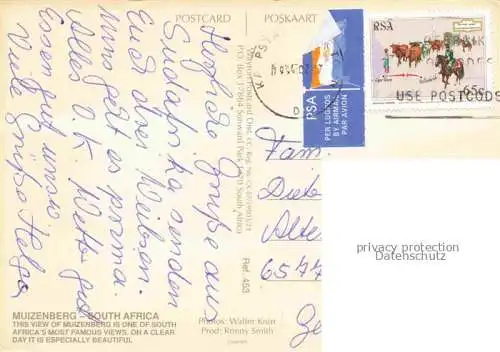 POSTCARD POSKAART
Herzliche Grüße aus
Südafrika senden
Euch drei Weibsen.
Uns geht es prima.
Alles o.k. Wetter gut
Essen gut u.s.w.
Viele Grüße Helga
MUIZENBERG – SOUTH AFRICA
THIS VIEW OF MUIZENBERG IS ONE OF SOUTH
AFRICA'S MOST FAMOUS VIEWS. ON A CLEAR
DAY IT IS ESPECIALLY BEAUTIFUL
South Africa
Ref. 453
Photos: Walter Knirr
Prod: Ronny Smith
RSA
PER LUGPOS
BY AIRMAIL
PAR AVION
RSA
65c
USE POSTCODE
Fam.
Diet
Alte
6577
Ge
privacy protection
Databases